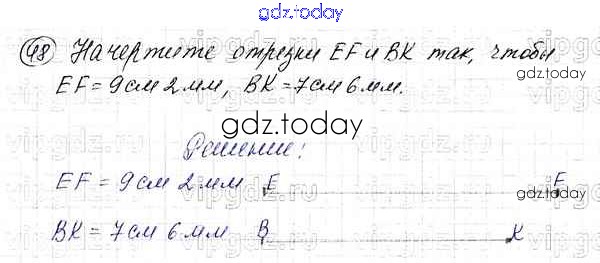 gdz.today
48 Начертите отрезки EF и ВК так, чтобы
gdz.today
EF = 9 см 2 мм, ВК = 7 см 6 мм.
gdz.today
Решение:
EF = 9 см 2 мм E F
gdz.today
ВК = 7 см 6 мм В К